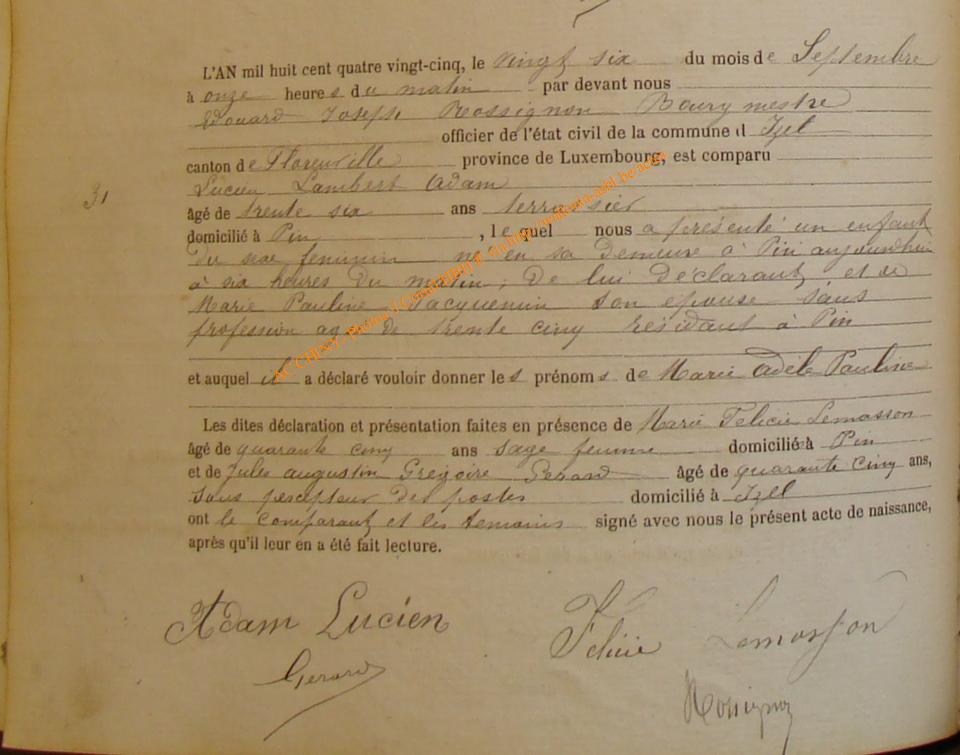 L'AN mil huit cent quatre vingt-cinq, le vingt six du mois de Septembre
à onze heures du matin par devant nous
Edouard Joseph Rossignon Bourgmestre
officier de l'état civil de la commune d Izel
canton de Florenville province de Luxembourg, est comparu
Lucien Lambert Adam
31
âgé de trente six ans terrassier
domicilié à Pin , lequel nous a présenté un enfant
du sexe feminin né en sa demeure à Pin aujourd'hui
à six heures du matin, de lui déclarant, et de
Marie Pauline Jacquemin son epouse sans
profession agée de trente cinq résidant à Pin
et auquel il a déclaré vouloir donner les prénoms de Marie Adèle Pauline
Les dites déclaration et présentation faites en présence de Marie Felicie Lemasson
âgé de quarante cinq ans sage femme domicilié à Pin
et de Jules augustin Grégoire Gerard âgé de quarante cinq ans,
sous percepteur des postes domicilié à Izel
ont le comparant et les temoins signé avec nous le présent acte de naissance,
après qu'il leur en a été fait lecture.
Adam Lucien
Félicie Lemasson
Gerard
Rossignon